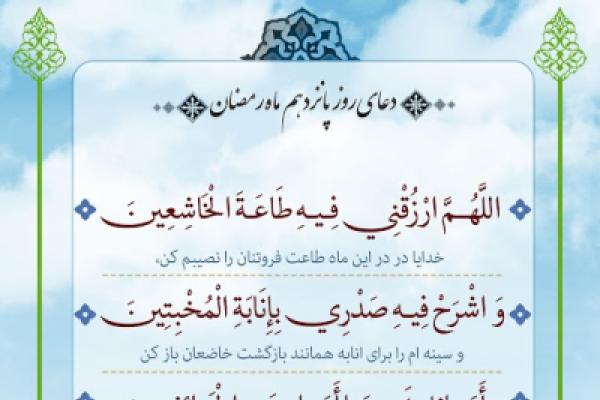 دعای روز پانزدهم ماه رمضان
اللَّهُمَّ ارْزُقْنِي فِيهِ طَاعَةَ الْخَاشِعِينَ
خدایا در در این ماه طاعت فروتنان را نصیبم کن،
وَ اشْرَحْ فِيهِ صَدْرِي بِإِنَابَةِ الْمُخْبِتِينَ
و سینه ام را برای انابه همانند بازگشت خاضعان باز کن